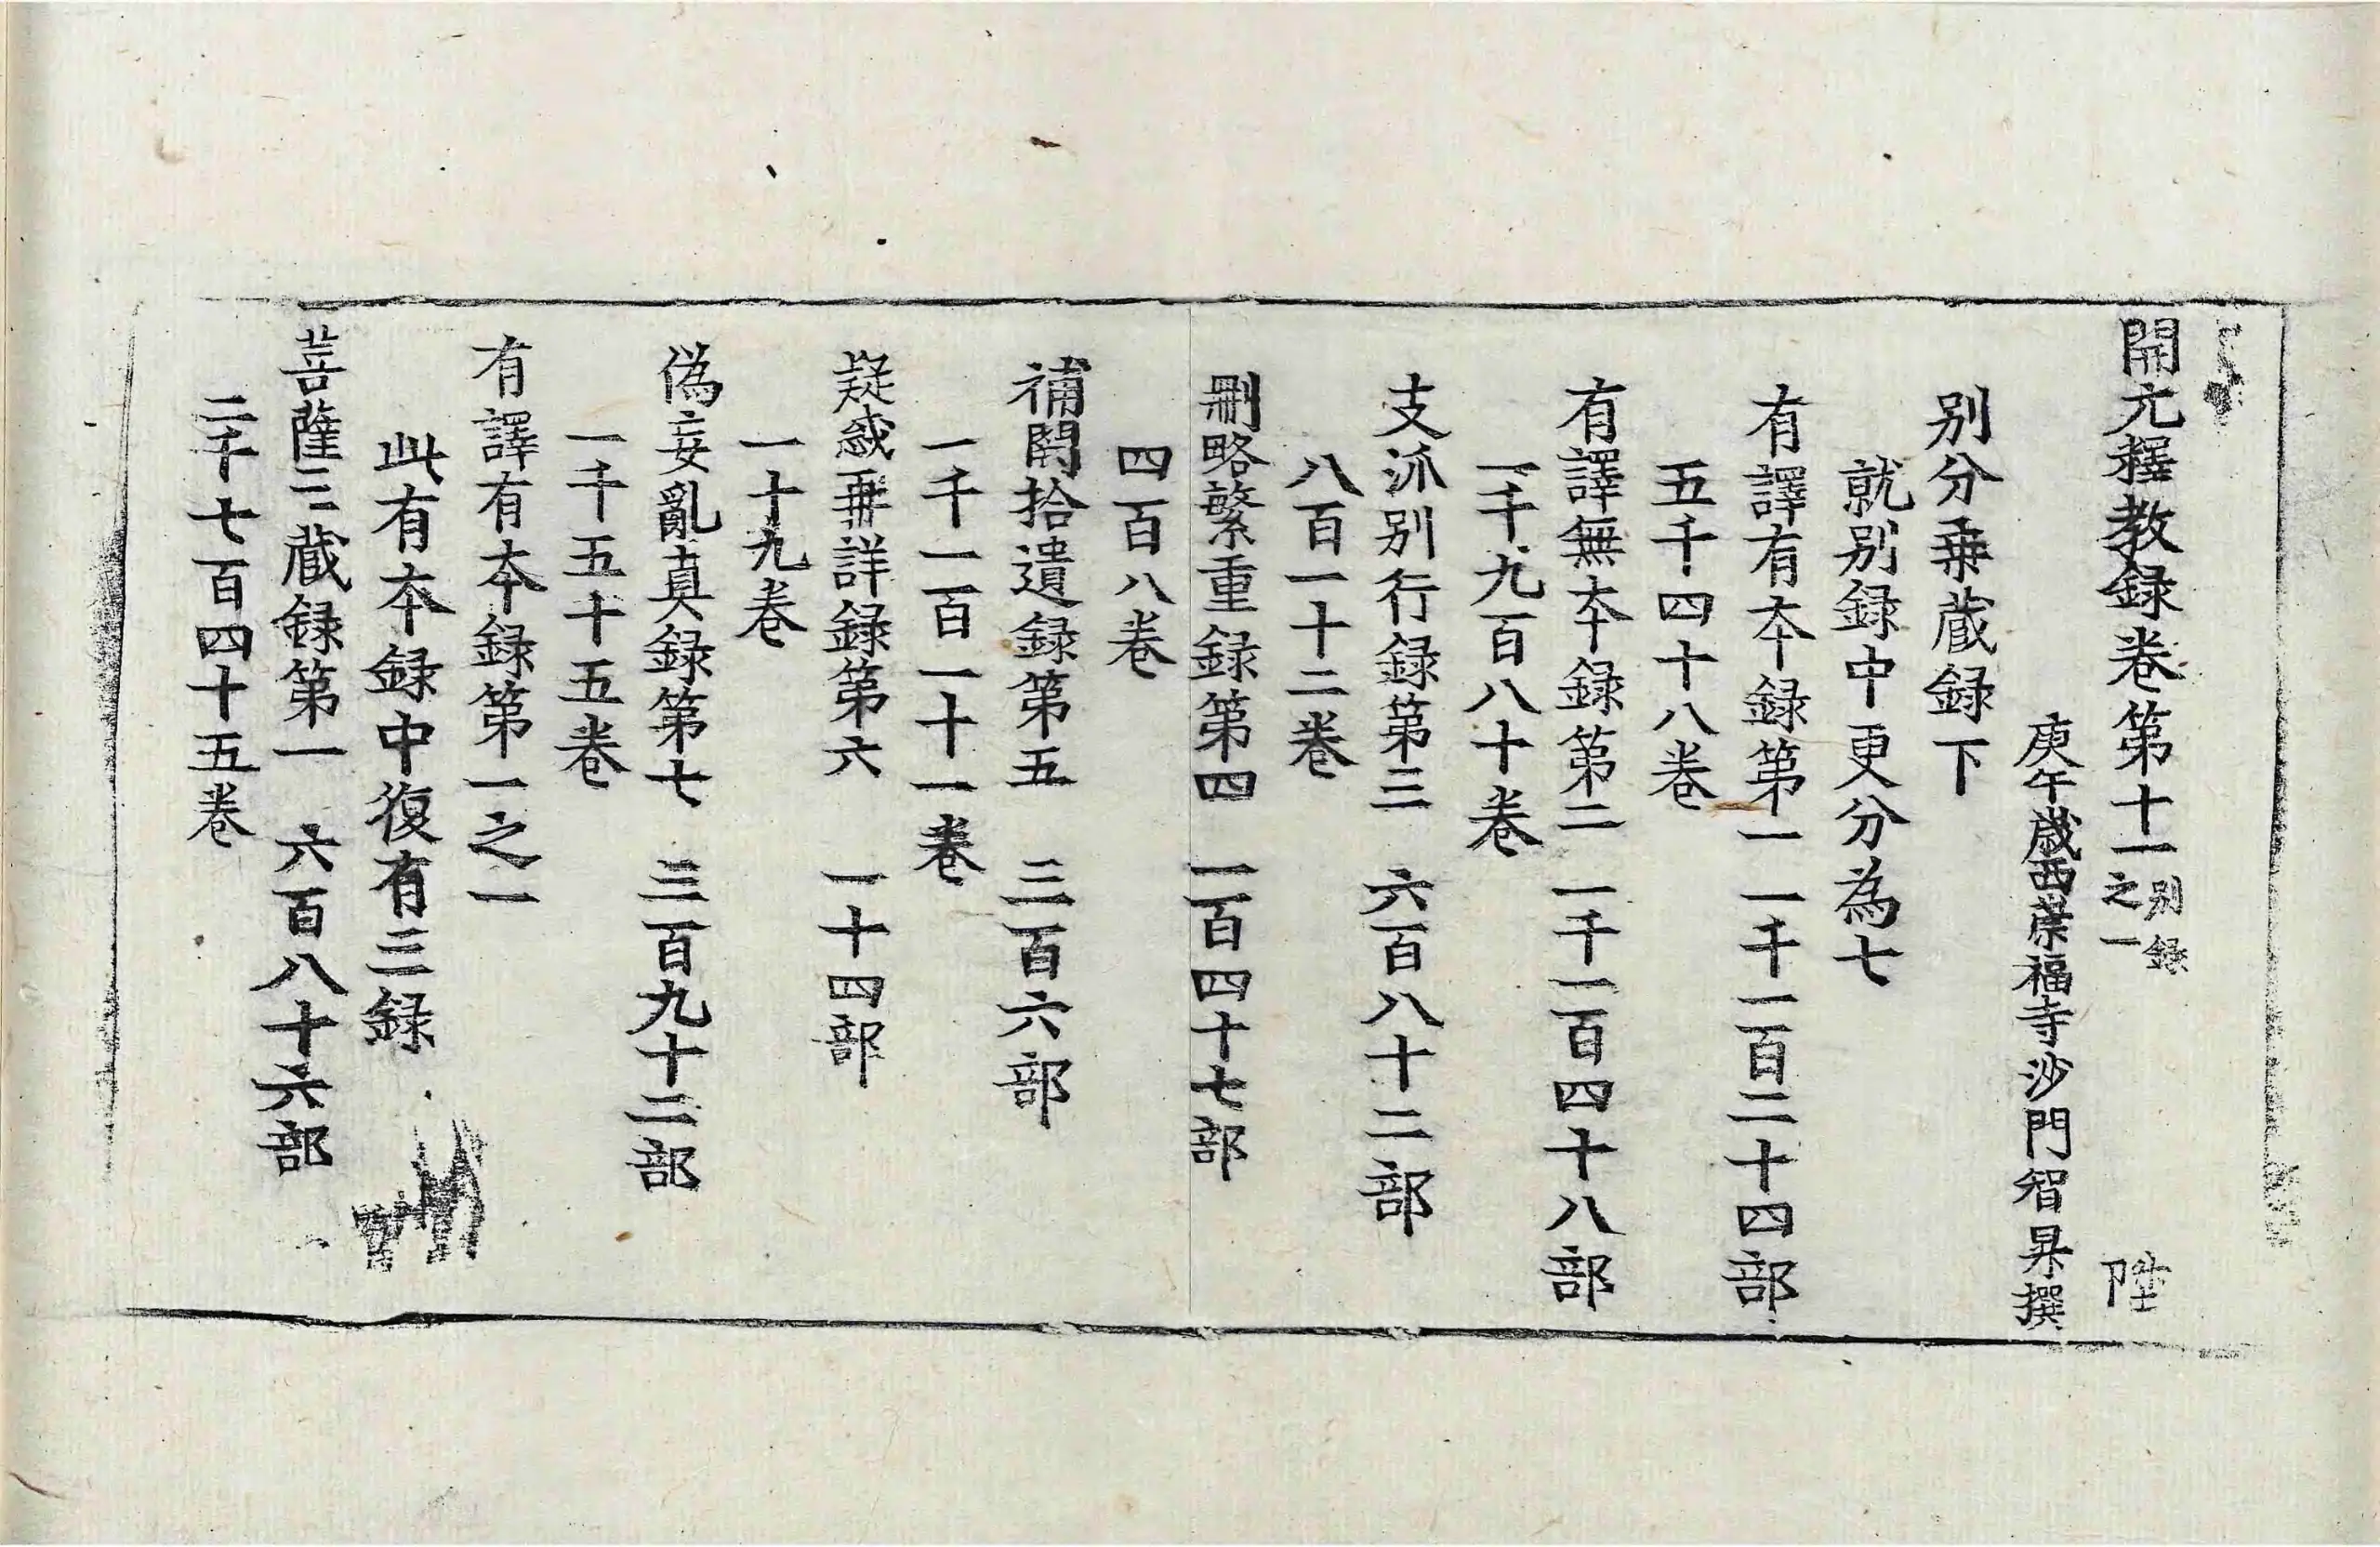 開元釋教録卷第十一 别録之一 陞
庚午歳西崇福寺沙門智昇撰
别分乗蔵録下
就别録中更分為七
有譯有夲録第一 一千一百二十四部
五千四十八巻
有譯無夲録第二 一千一百四十八部
一千九百八十巻
支派别行録第三 六百八十二部
八百一十二巻
刪略繁重録第四 一百四十七部
四百八巻
補闕拾遺録第五 三百六部
一千一百一十一巻
疑惑再詳録第六 一十四部
一十九巻
偽妄亂真録第七 三百九十二部
一千五十五巻
有譯有夲録第一之一
此有夲録中復有三録
菩薩三蔵録第一 六百八十六部
二千七百四十五巻